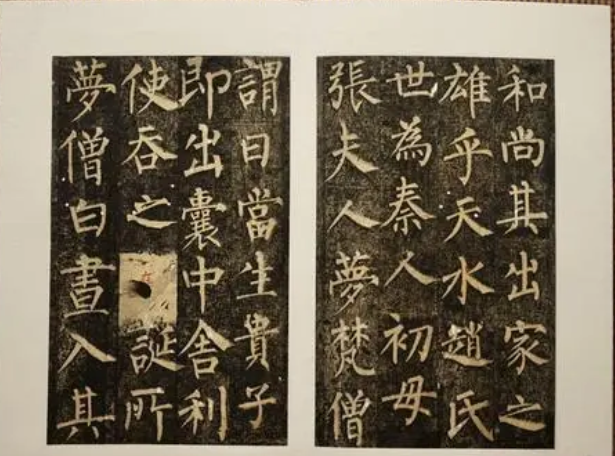 和尚其出家之
雄乎天水趙氏
世為秦人初母
張夫人夢梵僧
謂曰當生貴子
即出囊中舍利
使吞之誕所
夢僧白晝入其